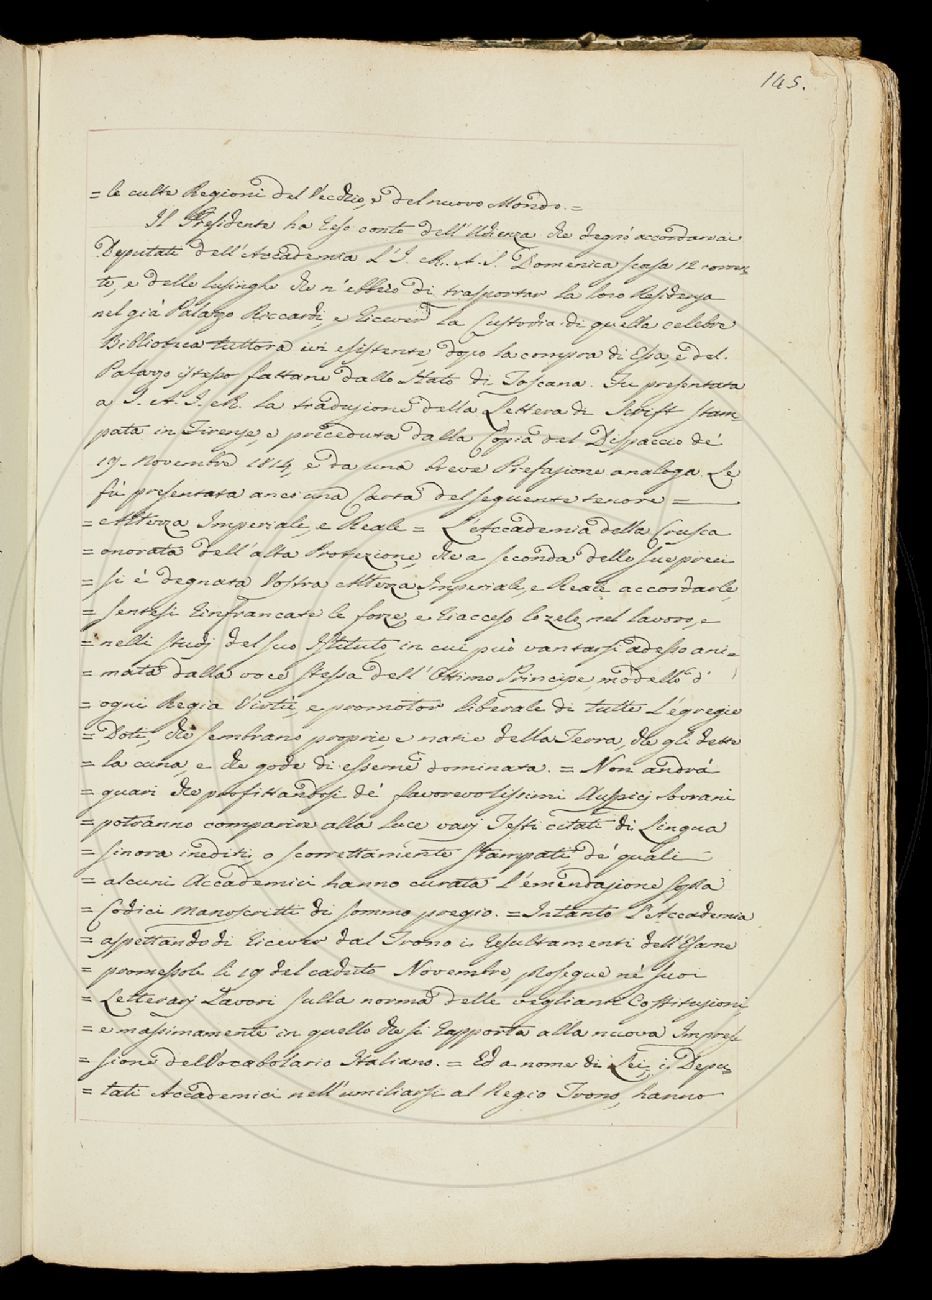 145.
= le culte Regioni del Vecchio, e del nuovo Mondo. =
Il Presidente ha reso conto dell'Udienza che degnò accordare a
Deputati dell'Accademia L'I. e R. A. S. Domenica scorsa 12 corren=
te, e delle lusinghe che n'ebbero di trasportar la loro Residenza
nel già Palazzo Riccardi, e ricever la Custodia di quella celebre
Biblioteca tuttora ivi esistente, dopo la compra di Essa, e del
Palazzo istesso fattane dallo Stato di Toscana. Fu presentata
a S. A. I. e R. la traduzione della Lettera di Swift stam=
pata in Firenze, e preceduta dalla Copia del Dispaccio de'
19. Novembre 1814, e da una breve Prefazione analoga. Le
fù presentata anco una Carta del seguente tenore =
= Altezza Imperiale, e Reale = L'Accademia della Crusca
= onorata dell'alta Protezione, che a seconda delle sue preci
= si è degnata Vostra Altezza Imperiale, e Reale accordarle,
= sentesi rinfrancate le forze, e riacceso lo zelo nel lavoro, e
= nelli studj del suo Istituto, in cui può vantarsi adesso ani=
= mata dalla voce stessa dell'Ottimo Principe, modello d'
= ogni Regia Virtù, e promotor liberale di tutte l'egregie
= Doti, che sembrano proprie, e natie della Terra, che gli dette
= la cuna, e che gode di esserne dominata. = Non andrà
= guari che profittandosi de' favorevolissimi Auspicj Sovrani
= potranno comparire alla luce varj Testi citati di Lingua
= sinora inediti, o scorrettamente stampati de' quali
= alcuni Accademici hanno curata l'emendazione sopra
= Codici manoscritti di sommo pregio. = Intanto l'Accademia
= aspettando di ricever dal Trono i resultamenti dell'Esame
= promessole li 19 del caduto Novembre, prosegue ne' suoi
= Letterarj Lavori sulla norma delle veglianti Costituzioni,
= e massimamente in quello che si rapporta alla nuova Impres=
= sione del Vocabolario Italiano. = Ed a nome di Lei, i Depu=
= tati Accademici nell'umiliarsi al Regio Trono, hanno